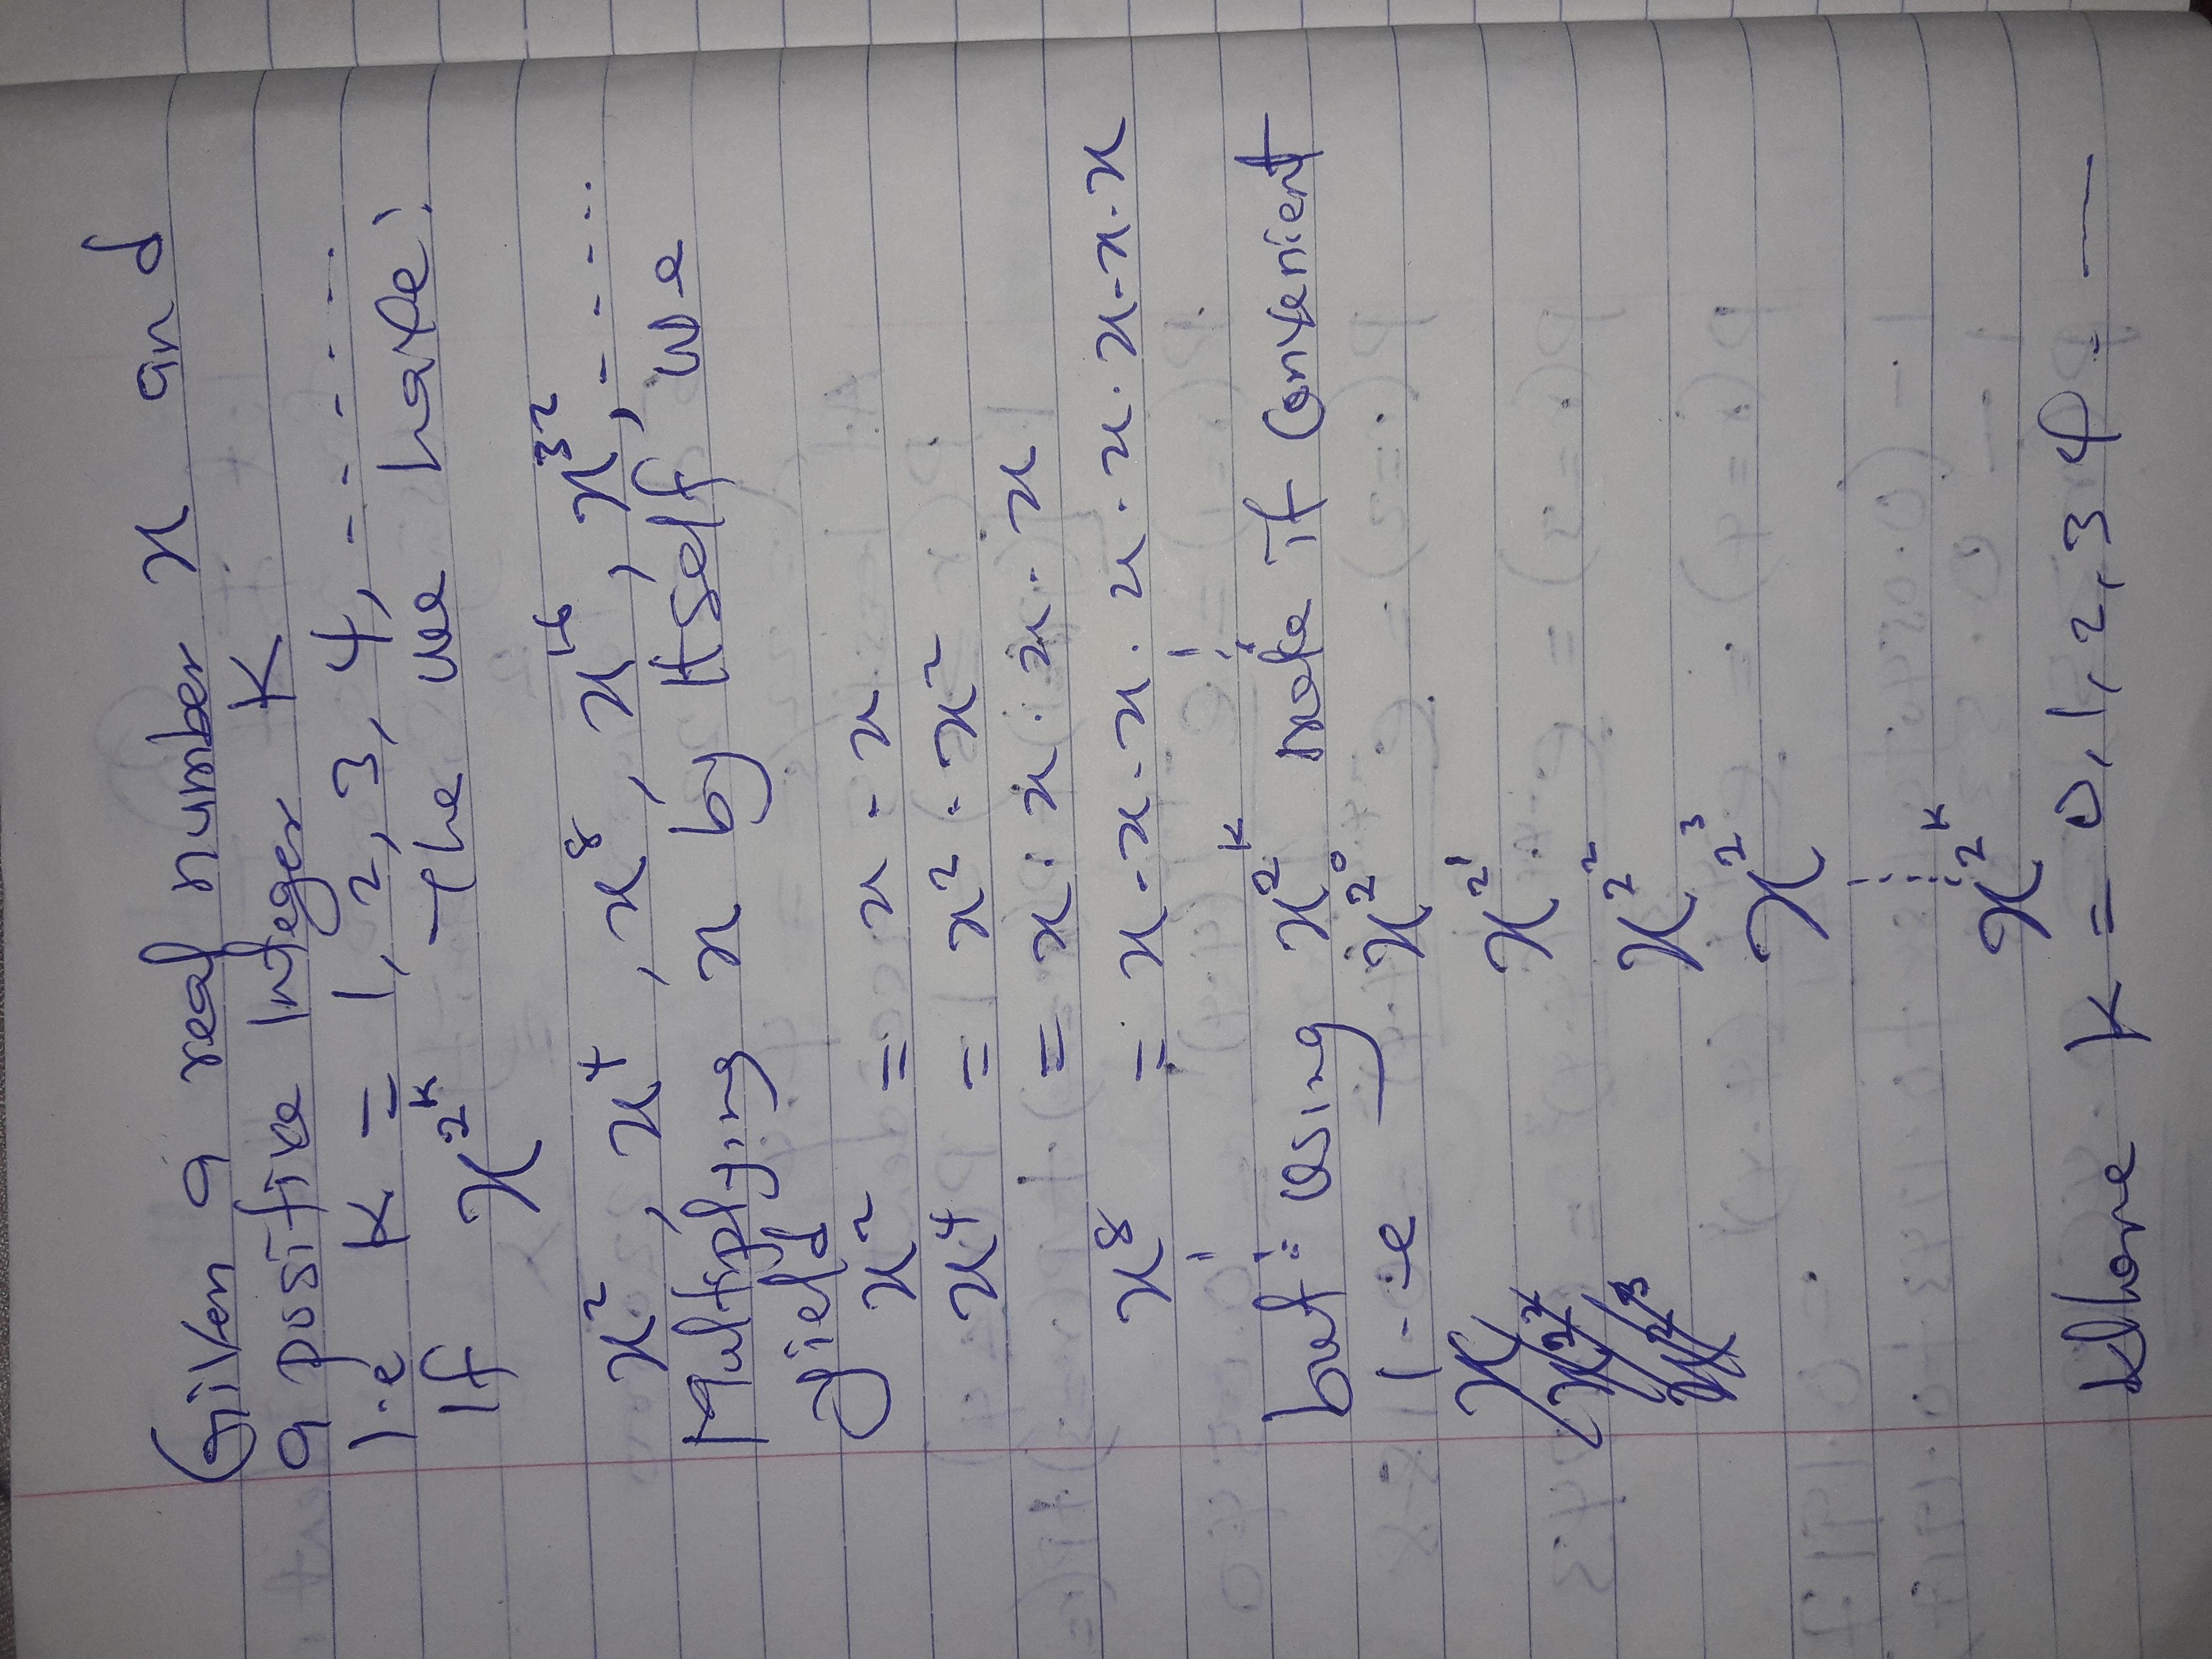 Given a real number x and
a positive Integer K
I.e K = 1, 2, 3, 4, - - - - - -
If x^{2^K} the we have:
x^2, x^4, x^8, x^16, x^32, - - - - - -
Multiplying x by itself we
yield
x^2 = x · x
x^4 = x^2 · x^2
= x · x · x · x
x^8 = x · x · x · x · x · x · x · x
but using x^{2^K} make it Convenient
I-e x^{2^0}
x^{2^1}
x^{2^2}
x^{2^3}
x^{2^K}
Where K = 0, 1, 2, 3 4 - -